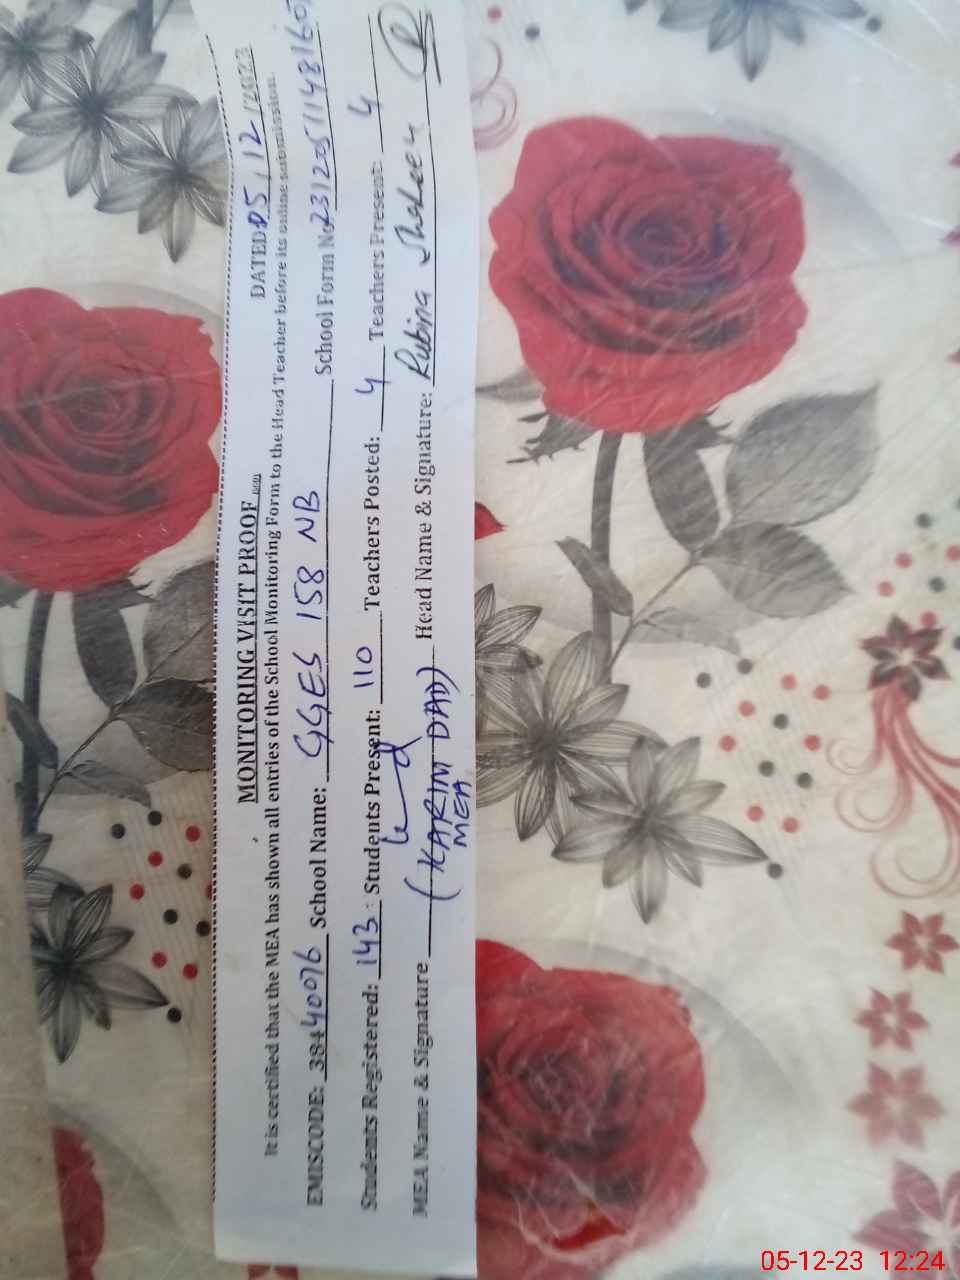 MONITORING VISIT PROOF
DATED: 05/12/2023
It is certified that the MEA has shown all entries of the School Monitoring Form to the Head Teacher before its online submission.
EMISCODE: 38440076 School Name: GGES 158 NB School Form No
Students Registered: 143 Students Present: 110 Teachers Posted: 4 Teachers Present: 4
MEA Name & Signature (KARIM DAD) Head Name & Signature: Rubina Shaheen
MEA
05-12-23 12:24